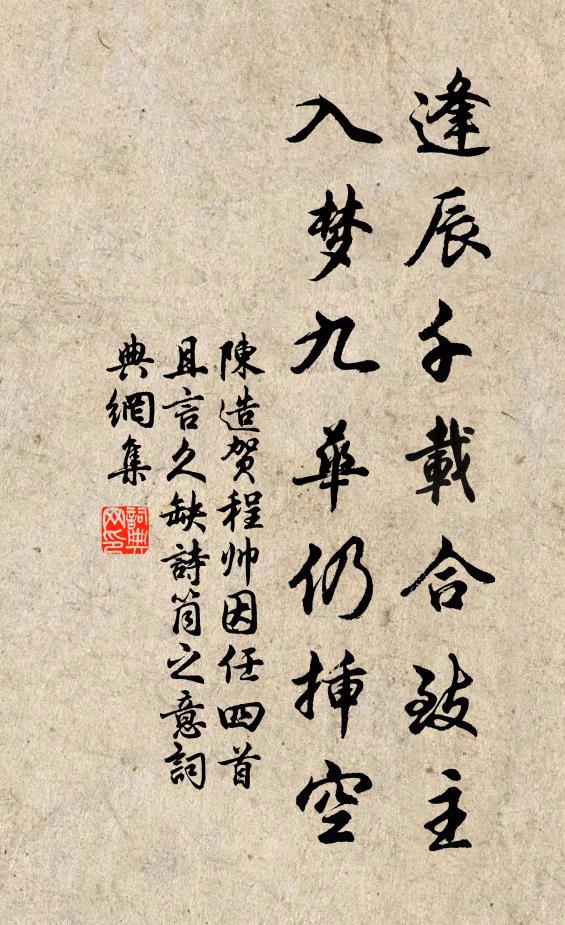 逢辰千載合致主
入梦九華仍揷空
陳造贺程帅因任四首
且言久缺詩筒之意詞
典網集
詞典
网印